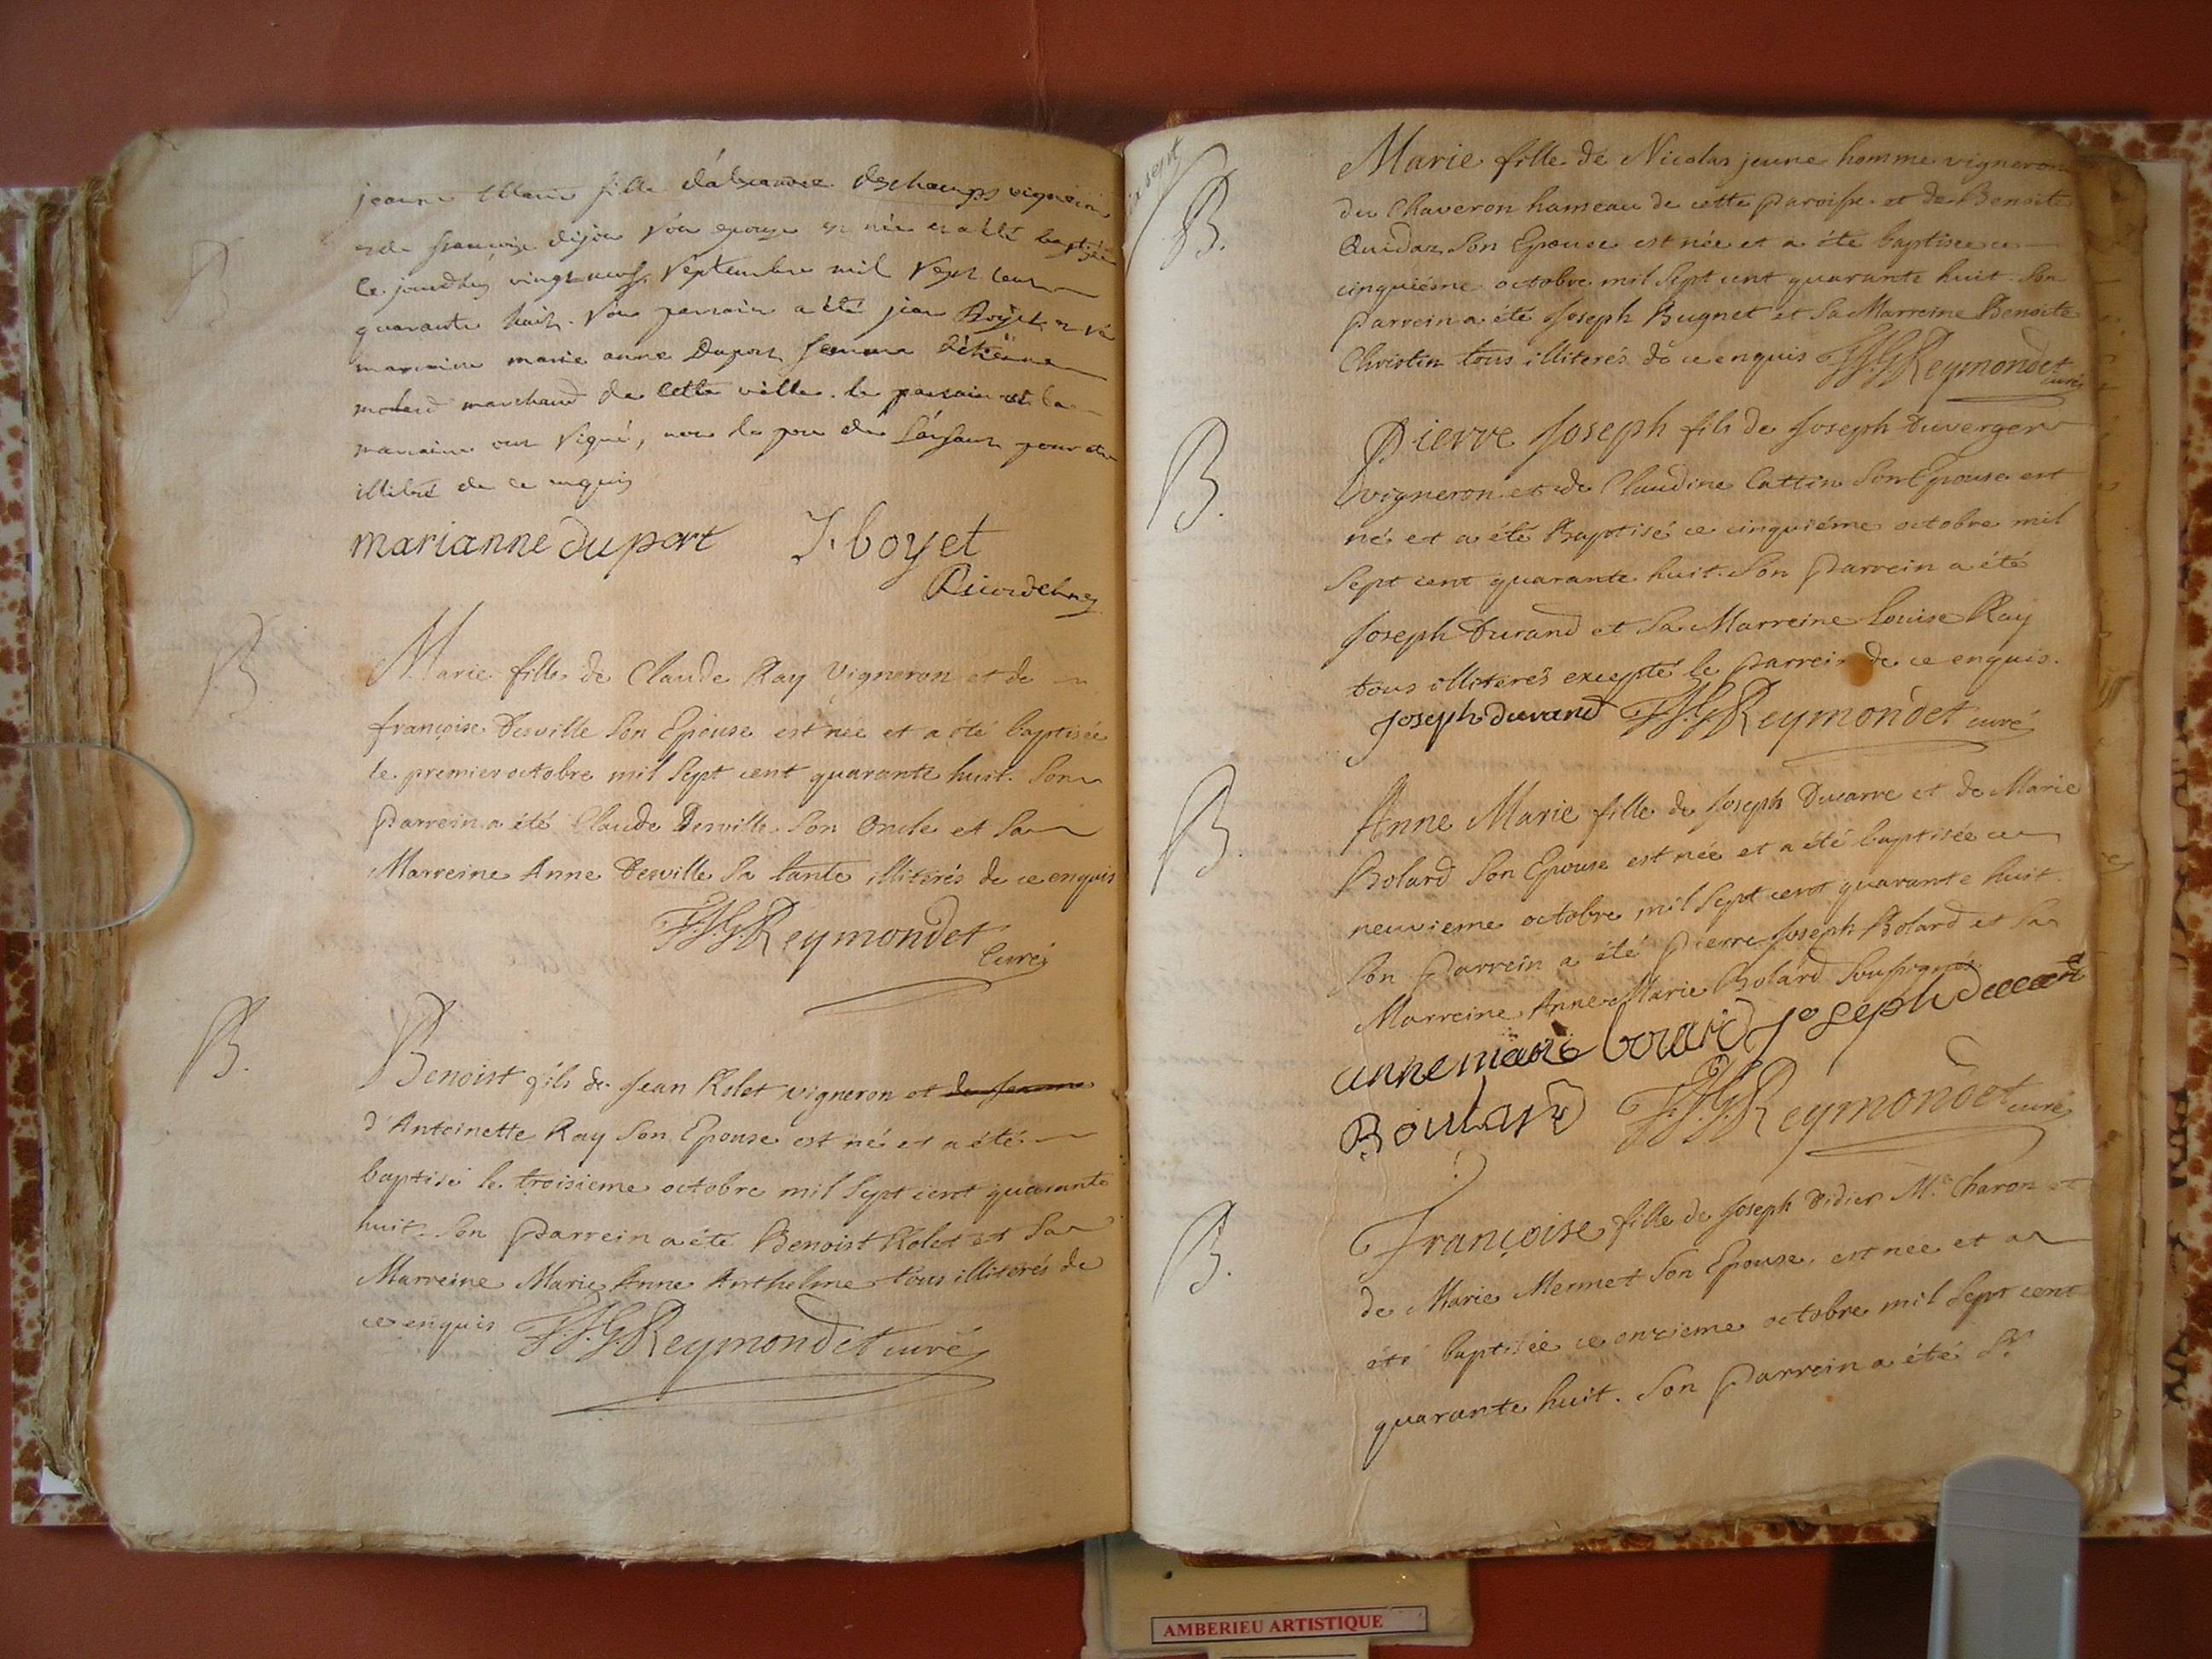 B
jeanne Marie fille d'alexandre deschamps vigneron
et de françoise dijon son epouse est née et a été baptisée
ce jourdhuy vingt neuf septembre mil sept cent
quarante huit. son parrain a été jean Boyet et sa
marraine marie anne Duport femme d'étienne
marchand de cette ville. le parrain et la
marraine ont signé, non le pere de l'enfant pour etre
illitéré de ce enquis
marianne duport J. boyet
B
Marie fille de Claude Ray Vigneron et de
françoise Desville Son Epouse est née et a été baptisée
le premier octobre mil Sept cent quarante huit. Son
Parrein a été Claude Desville Son Oncle et Sa
Marreine Anne Desville Sa tante illiterés de ce enquis
F.J.G. Reymondet
Curé
B.
Benoist fils de Jean Rolet vigneron et de Jeanne
d'Antoinette Ray Son Epouse est né et a été
baptisé le troisieme octobre mil Sept cent quarante
huit. Son Parrein a été Benoist Rolet et Sa
Marreine Marie Anne Anthelme tous illiterés de
ce enquis F.J.G. Reymondet curé
sept
B.
Marie fille de Nicolas jeune homme vigneron
du Chaveron hameau de cette Paroisse et de Benoite
Quidaz Son Epouse est née et a été baptisée ce
cinquiéme octobre mil Sept cent quarante huit. Son
Parrein a été Joseph Bugnet et Sa Marreine Benoite
Christin tous illiterés de ce enquis F.J.G. Reymondet
curé
B.
Pierre Joseph fils de Joseph Duverger
vigneron et de Claudine Cattin Son Epouse est
né et a été Baptisé ce cinquiéme octobre mil
Sept cent quarante huit. Son Parrein a été
Joseph Durand et Sa Marreine Louise Ray
tous illiterés excepté le Parrein de ce enquis.
Joseph durand F.J.G. Reymondet curé
B.
Anne Marie fille de Joseph Ducarre et de Marie
Bolard Son Epouse est née et a été baptisée ce
neuvieme octobre mil Sept cent quarante huit.
Son Parrein a été Pierre Joseph Bolard et Sa
Marreine Anne Marie Bolard Soussignés
anne marie Joseph
Boulard F.J.G. Reymondet curé
B.
Françoise fille de Joseph Didier M.e Charon et
de Marie Mermet Son Epouse, est née et a
été baptisée ce onzieme octobre mil Sept cent
quarante huit. Son Parrein a été S.r
AMBERIEU ARTISTIQUE